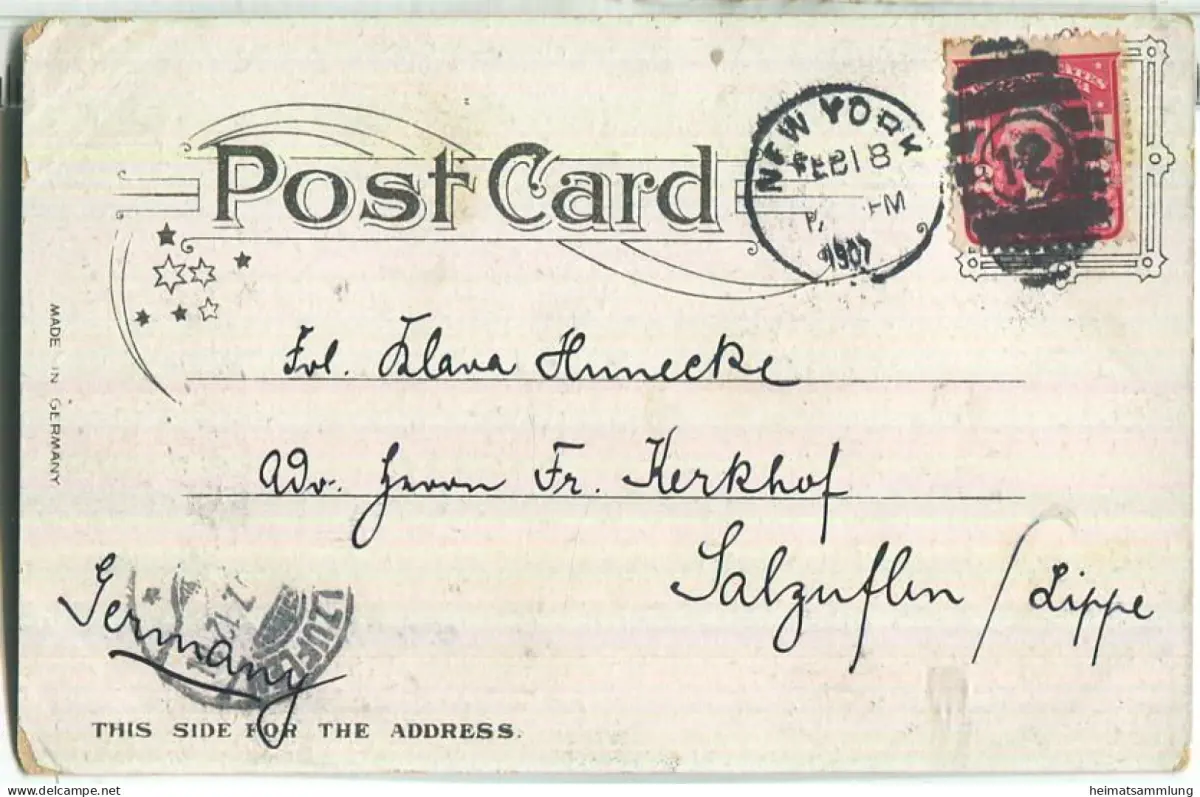 Post Card
NEW YORK
FEB 18
PM
1907
12
MADE IN GERMANY
Frl. Klara Hunecke
Adr. Herrn Fr. Kerkhof
Salzuflen / Lippe
Germany
LZUFLE
THIS SIDE FOR THE ADDRESS.
heimatsammlung